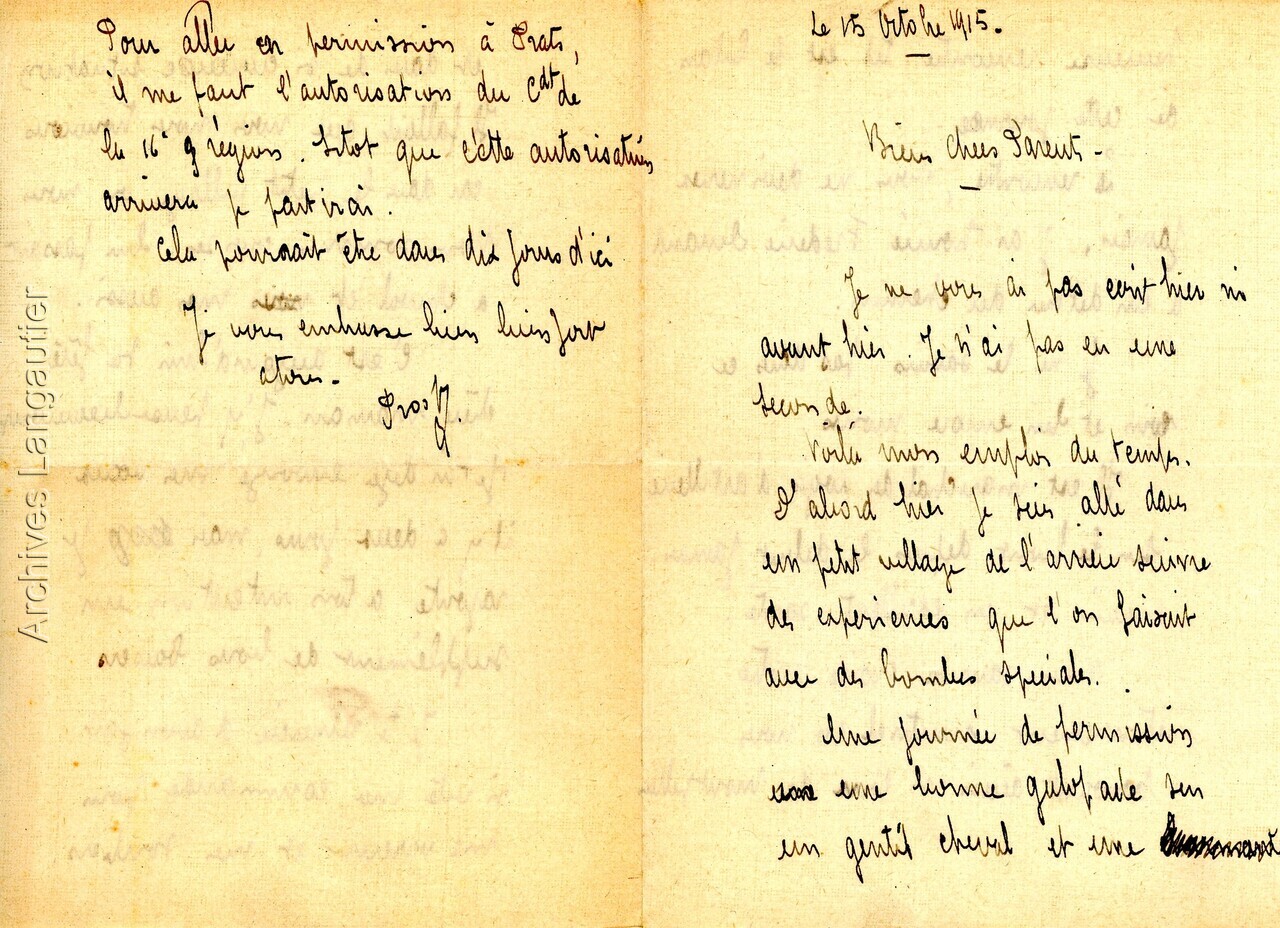 Pour aller en permission à Prats,
il me faut l'autorisation du Cdt de
la 16e région. Sitot que cette autorisation
arrivera je partirai.
Cela pourrait être dans dix jours d'ici
Je vous embrasse bien bien fort
a tous.
Le 15 Octobre 1915.
Biens Chers Parents
Je ne vous ai pas ecrit hier ni
avant hier. Je n'ai pas eu une
seconde.
Voila mon emploi du temps.
D'abord hier je suis allé dans
un petit village de l'arrière suivre
des experiences que l'on faisait
avec des bombes speciales.
Une journée de permission
une bonne galopade sur
un gentil cheval et une
Archives Langautier